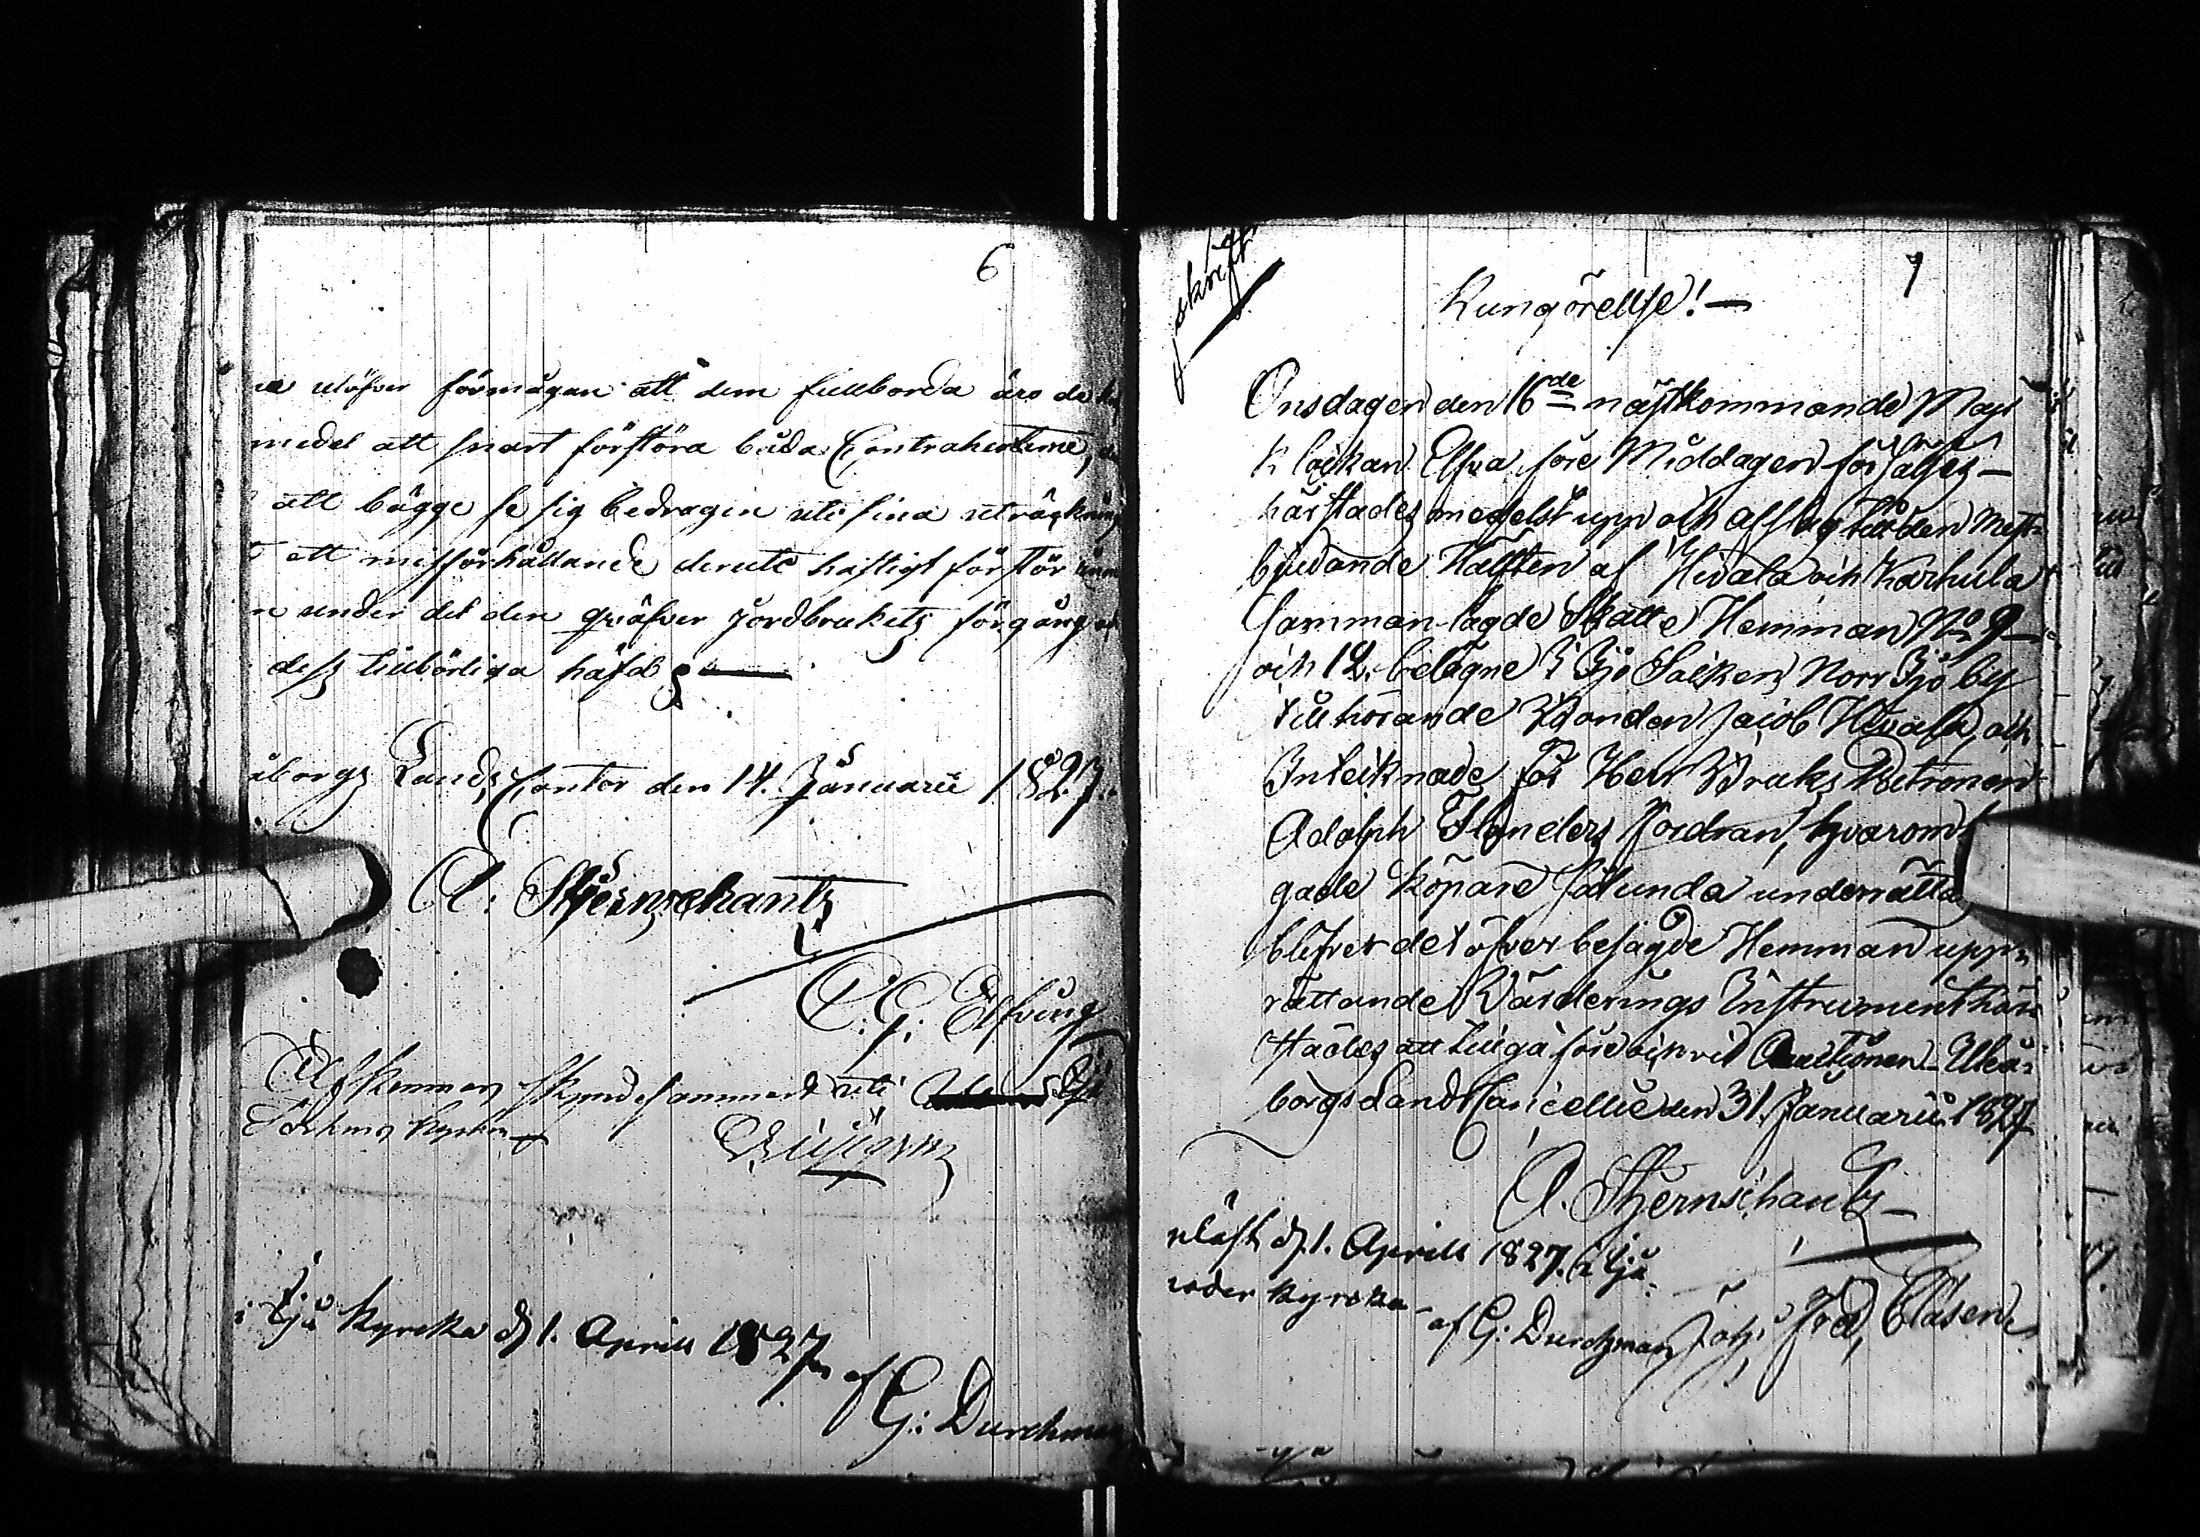 6
utöfver förmågan att dem fullborda äro de
medel att snart förstöra båda Contrahenterne,
att bägge se sig bedragen uti sina uträkning
ett missförhållande deruti hastigt förstör
under det den gräfver jordbrukets förgång
dess tillbörliga häfd
åborgs Lands Contor den 14. Januarii 1827.
A: Stjernschantz
C. G. Elfving
skyndesammast uti Ijo
i Ijo kyrcka d. 1. Aprill 1827
af G: Durchman
7
skrift
Kungörellse!
Onsdagen den 16de nästkommande Maji
Klockan Elfva före Middagen försäljes
härstädes medelst upp och afslag till den mest
bjudande Hälften af Hivala och Karhula
samman lagde Skatte Hemman No 9
och 12. belägne i Ijo Sockens Norr Ijo by
tillhörande Bonden Jacob Hivala, och
Inteiknade för Herr Bruks Patronen
Adolph Flanders fordran, hvarom
gade Köpare sålunda underrättas
blifver det öfver besagde Hemman upp
rättande Värderings Instrument här
städes att tillgå före och vid Auctionen. Uleå
borgs Lands Cancellie den 31. Januarii 1827
A. Stjernschantz
upläst d. 1. Aprill 1827. i Ijo
moder kyrcka
af G: Durchman
Joh: Fred, Clasen